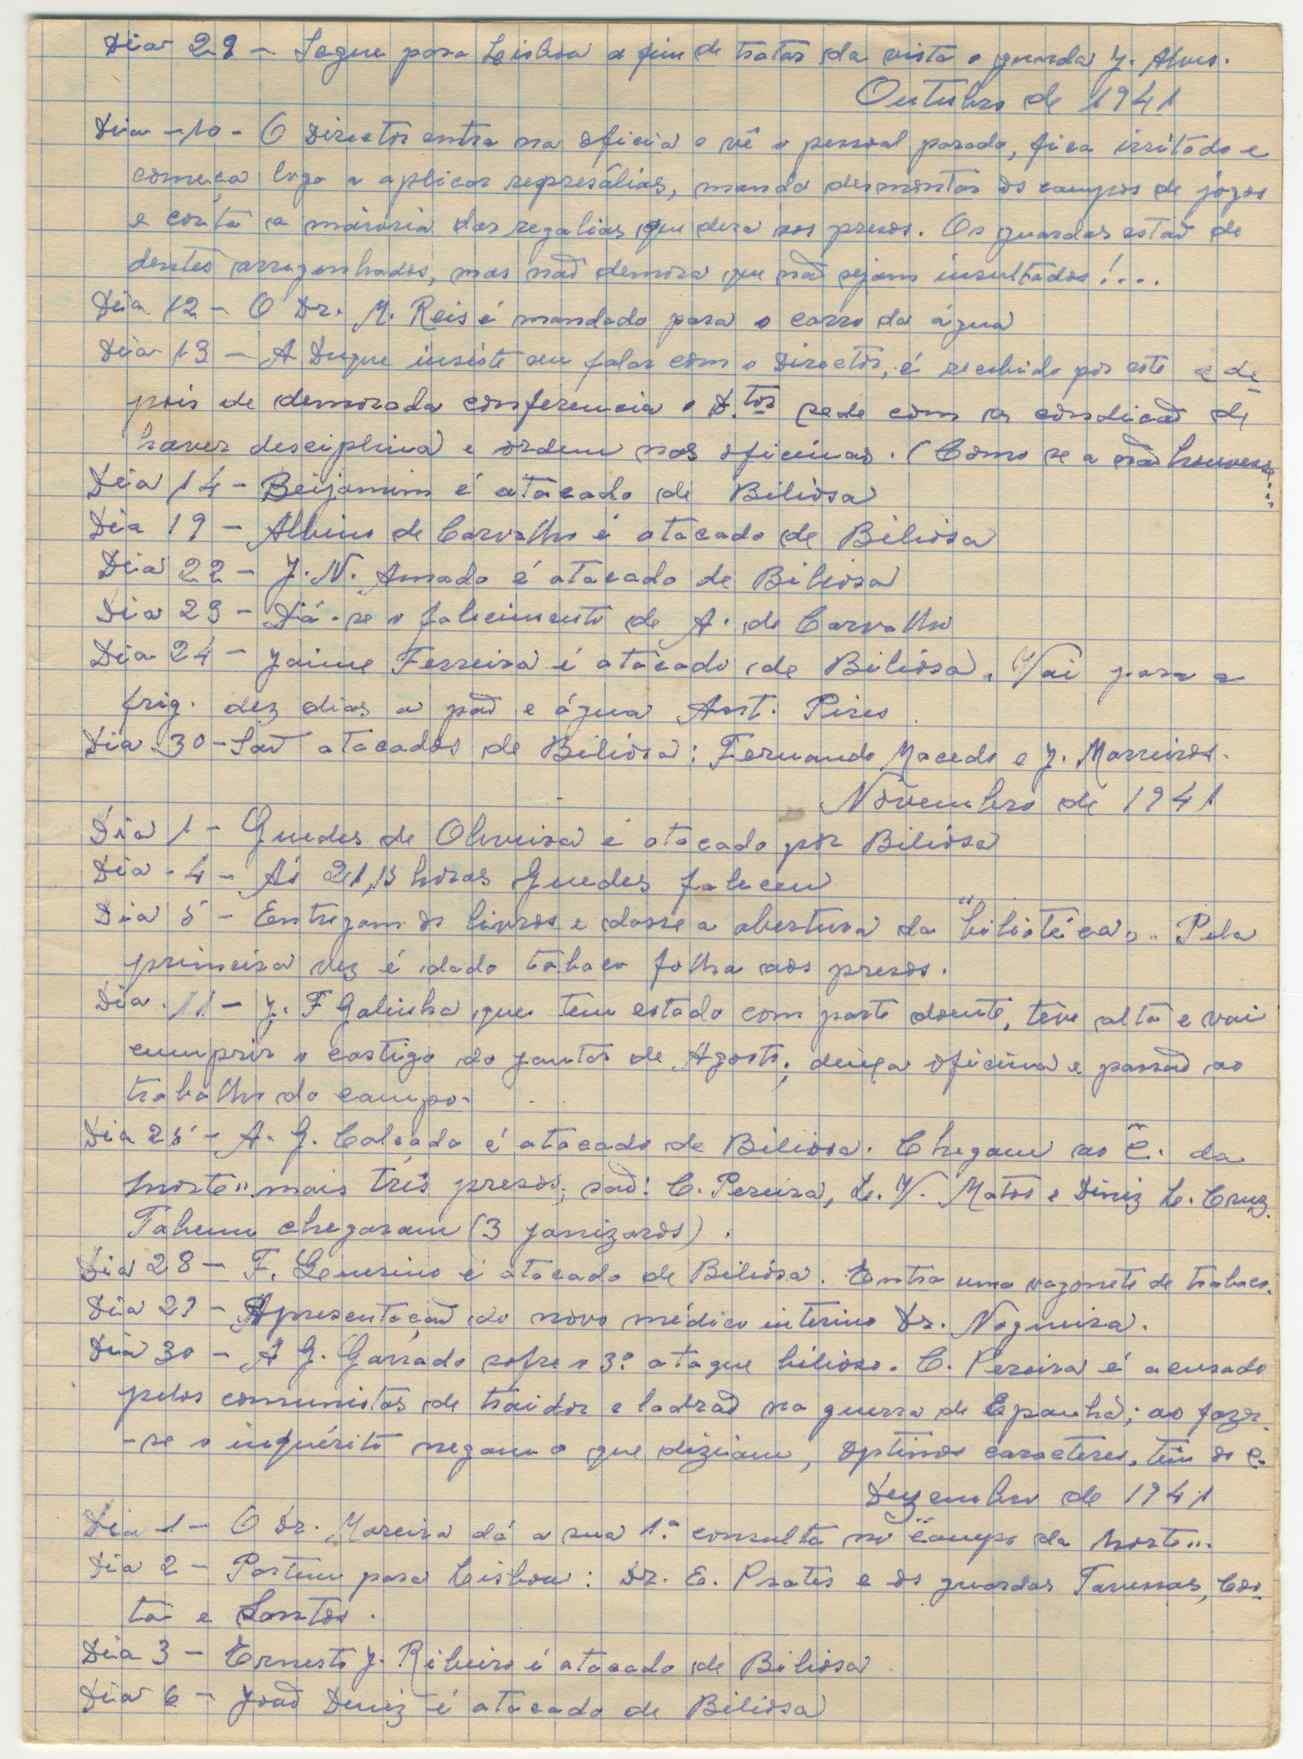 Dia 29 - Segue para Lisboa a fim de tratar da vista o guarda J. Alves.
Outubro de 1941
Dia -10- O Director entra na oficia e vê o pessoal parado, fica irritado e
começa logo a aplicar represálias, manda desmontar os campos de jogos
e corta a maioria das regalias que dera aos presos. Os guardas estaõ de
dentes arreganhados, mas naõ demora que naõ sejam insultados!...
Dia 12 - O Dr. M. Reis é mandado para o carro da água
Dia 13 - A Duque insiste em falar com o Director, é recebido por este e de-
pois de demorada conferencia o D.tor cede com a condicaõ de
haver desciplina e ordem nas oficinas. (Como se a naõ houvera...
Dia 14 - Beijamim é atacado de Biliosa
Dia 19 - Albino de Carvalho é atacado de Biliosa
Dia 22 - J. N. Amado é atacado de Biliosa
Dia 23 - Dá-se o falecimento de A. de Carvalho
Dia 24 - Jaime Ferreira é atacado de Biliosa. Vai para a
frig. dez dias a paõ e água Ant. Pires
Dia 30 - Saõ atacados de Biliosa: Fernando Macedo e J. Marreiros.
Novembro de 1941
Dia 1 - Guedes de Oliveira é atacado por Biliosa
Dia - 4 - Ás 21,15 horas Guedes faleceu
Dia 5 - Entregam os livros e dasse a abertura da "biliotéca". Pela
primeira vez é dado tabaco folha aos presos.
Dia 11 - J. F Galinha que tem estado com parte doente, teve alta e vai
cumprir o castigo do jantar de Agosto; deixa oficina e passaõ ao
trabalho do campo.
Dia 25 - A. G. Calçada é atacado de Biliosa. Chegam ao "C. da
morte" mais três presos; saõ: C. Pereira, L. V. Matos e Diniz L. Cruz.
Tabem chegaram (3 janizaros).
Dia 28 - F. é atacado de Biliosa. Entra uma vagonete de trabaco.
Dia 29 - Apresentaçaõ do novo médico interino Dr. Nogueira.
Dia 30 - A G. Garrado sofre o 3º ataque bilioso. C. Pereira é acusado
pelos comunistas de traidor e ladraõ na guerra de Epanha; ao fazer-
-se o inquérito negam o que diziam, optimos caracteres, têm os C.
Dezembro de 1941
Dia -1- O Dr. Moreira dá a sua 1.ª consulta no "campo da morte".
Dia 2 - Partem para Lisboa: Dr. E. Prates e os guardas Cos-
ta e Santos.
Dia 3 - Ernesto J. Ribeiro é atacado de Biliosa
Dia 6 - Joaõ Deniz é atacado de Biliosa